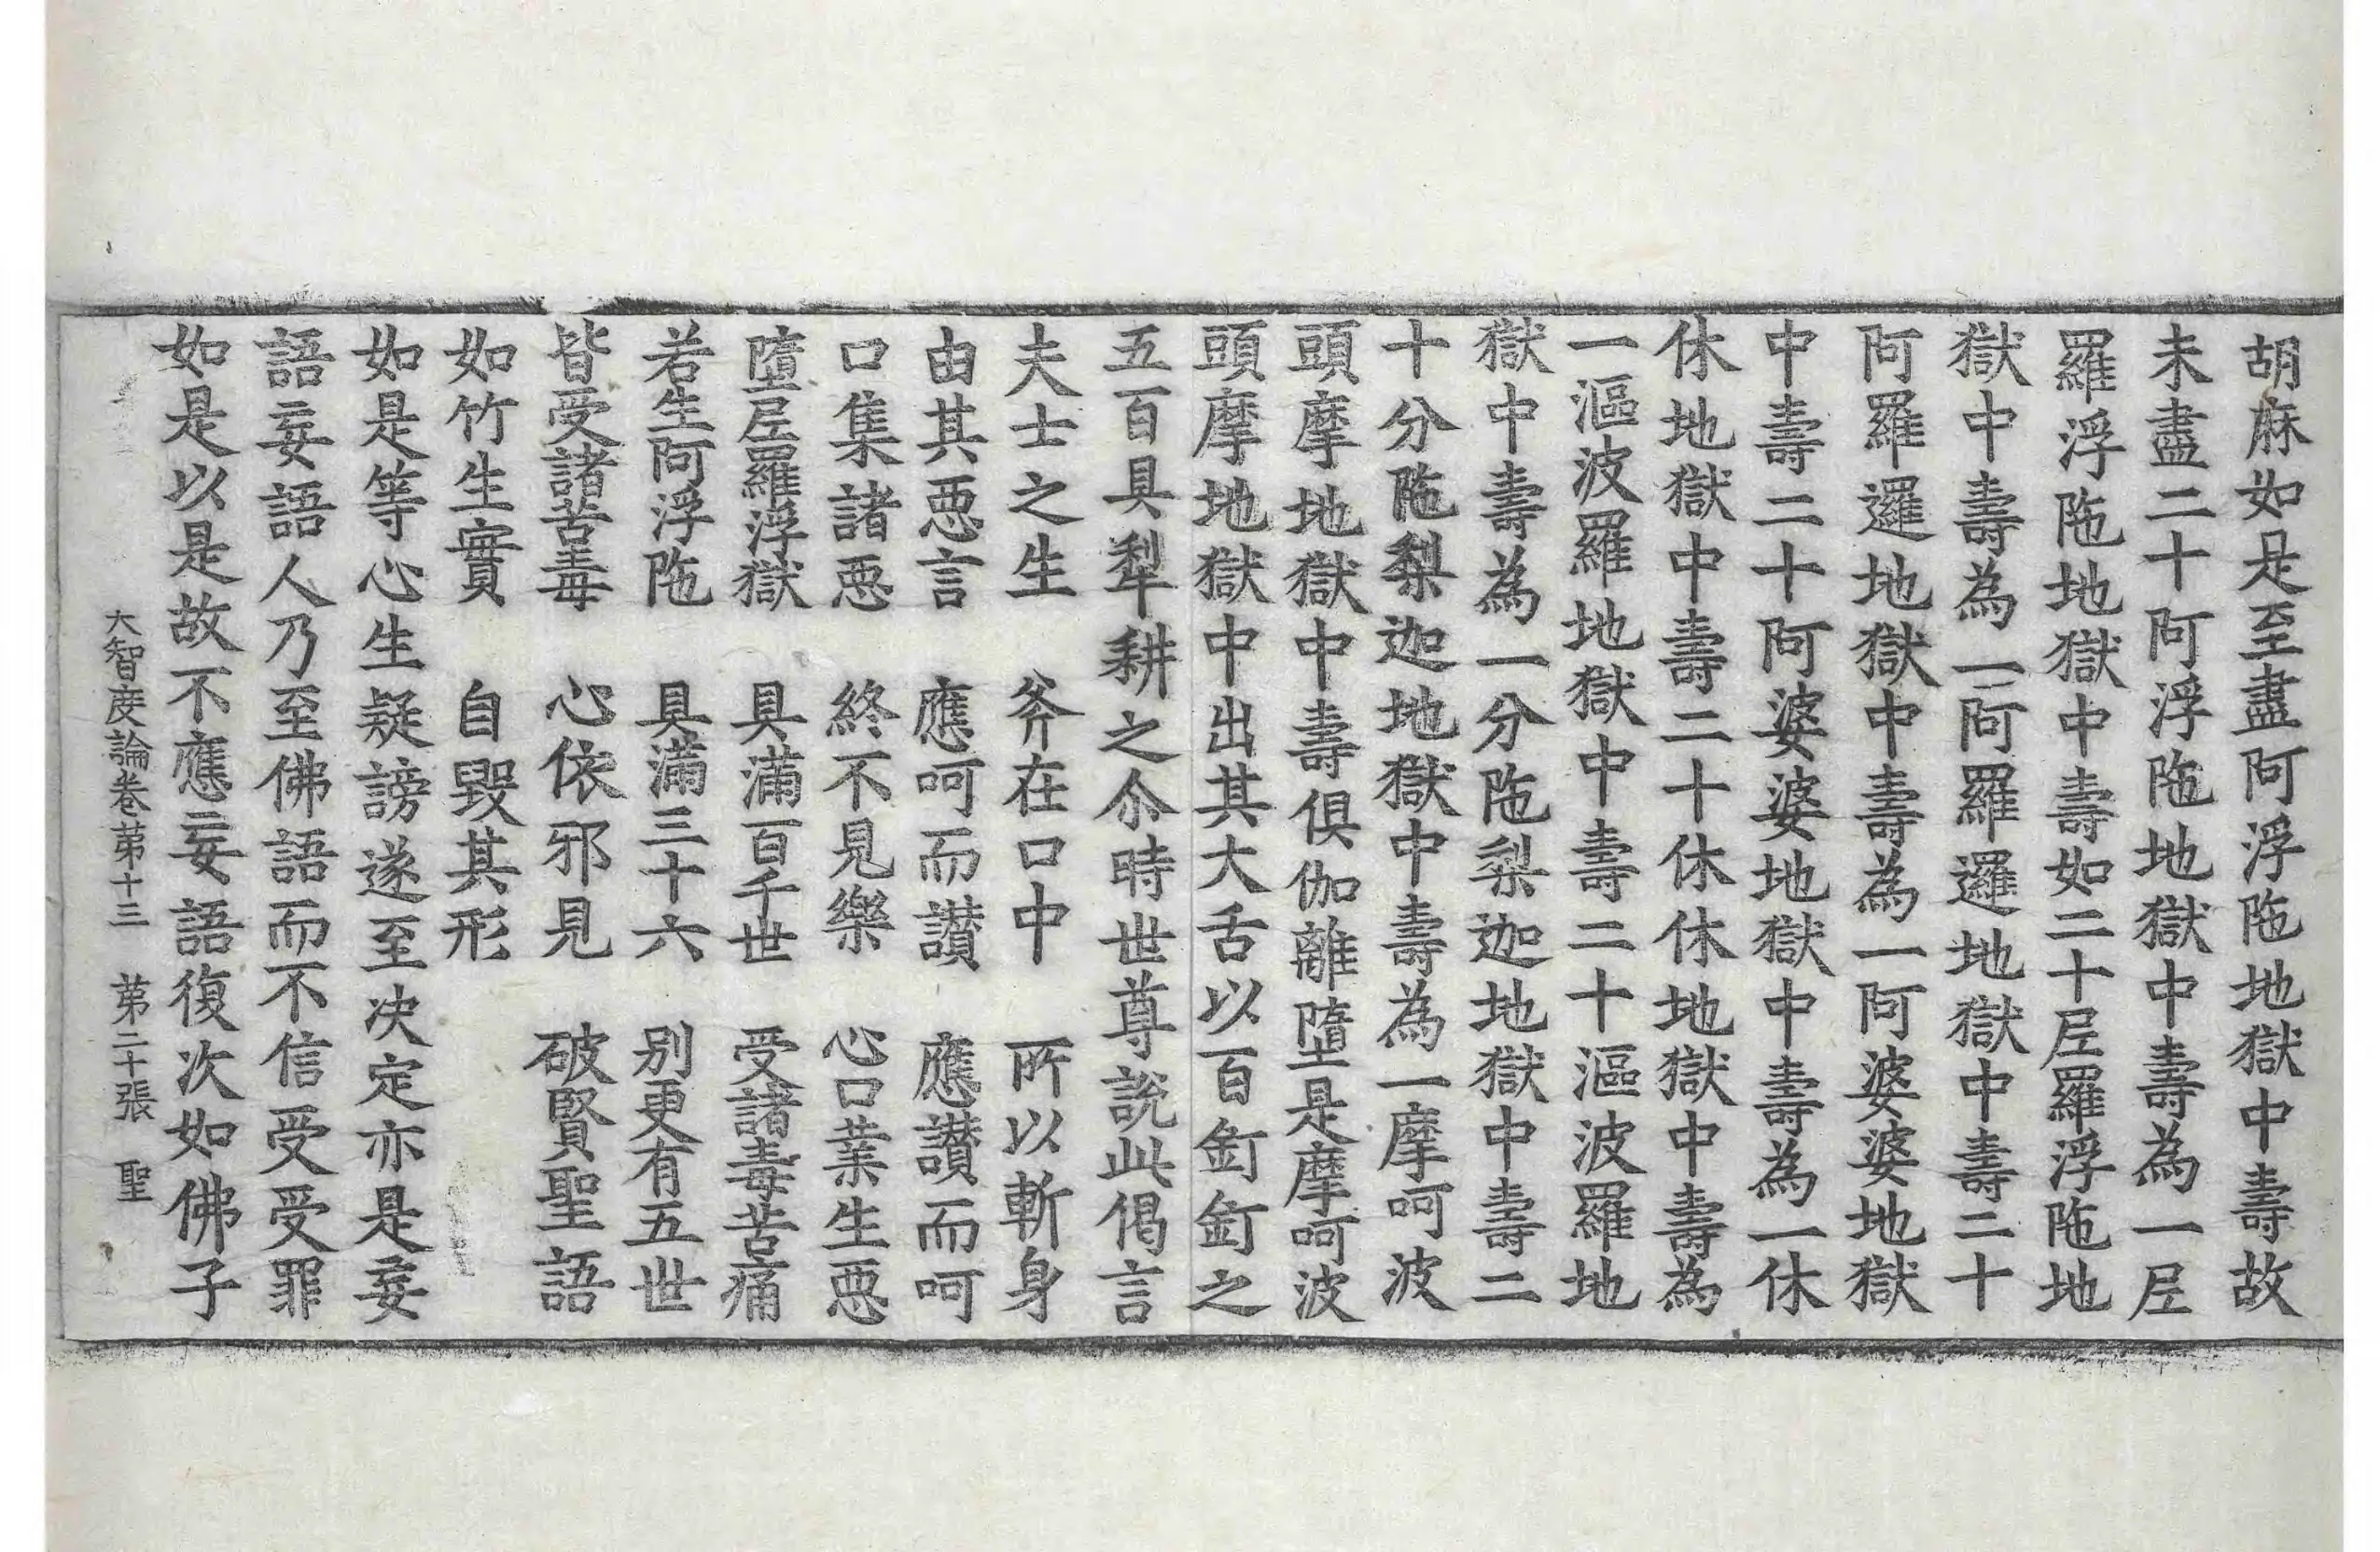 胡麻如是至盡阿浮陁地獄中壽故
未盡二十阿浮陁地獄中壽為一𡰱
羅浮陁地獄中壽如二十𡰱羅浮陁地
獄中壽為一阿羅邏地獄中壽二十
阿羅邏地獄中壽為一阿婆婆地獄
中壽二十阿婆婆地獄中壽為一休
休地獄中壽二十休休地獄中壽為
一漚波羅地獄中壽二十漚波羅地
獄中壽為一分陁梨迦地獄中壽二
十分陁梨迦地獄中壽為一摩呵波
頭摩地獄中壽俱伽離墮是摩呵波
頭摩地獄中出其大舌以百釘釘之
五百具犁耕之尒時世尊說此偈言
夫士之生　斧在口中　所以斬身
由其惡言　應呵而讃　應讃而呵
口集諸惡　終不見樂　心口業生惡
墮𡰱羅浮獄　具滿百千世　受諸毒苦痛
若生阿浮陁　具滿三十六　別更有五世
皆受諸苦毒　心依邪見　破賢聖語
如竹生實　自毀其形
如是等心生疑謗遂至決定亦是妄
語妄語人乃至佛語而不信受受罪
如是以是故不應妄語復次如佛子
大智度論卷第十三　第二十張　聖